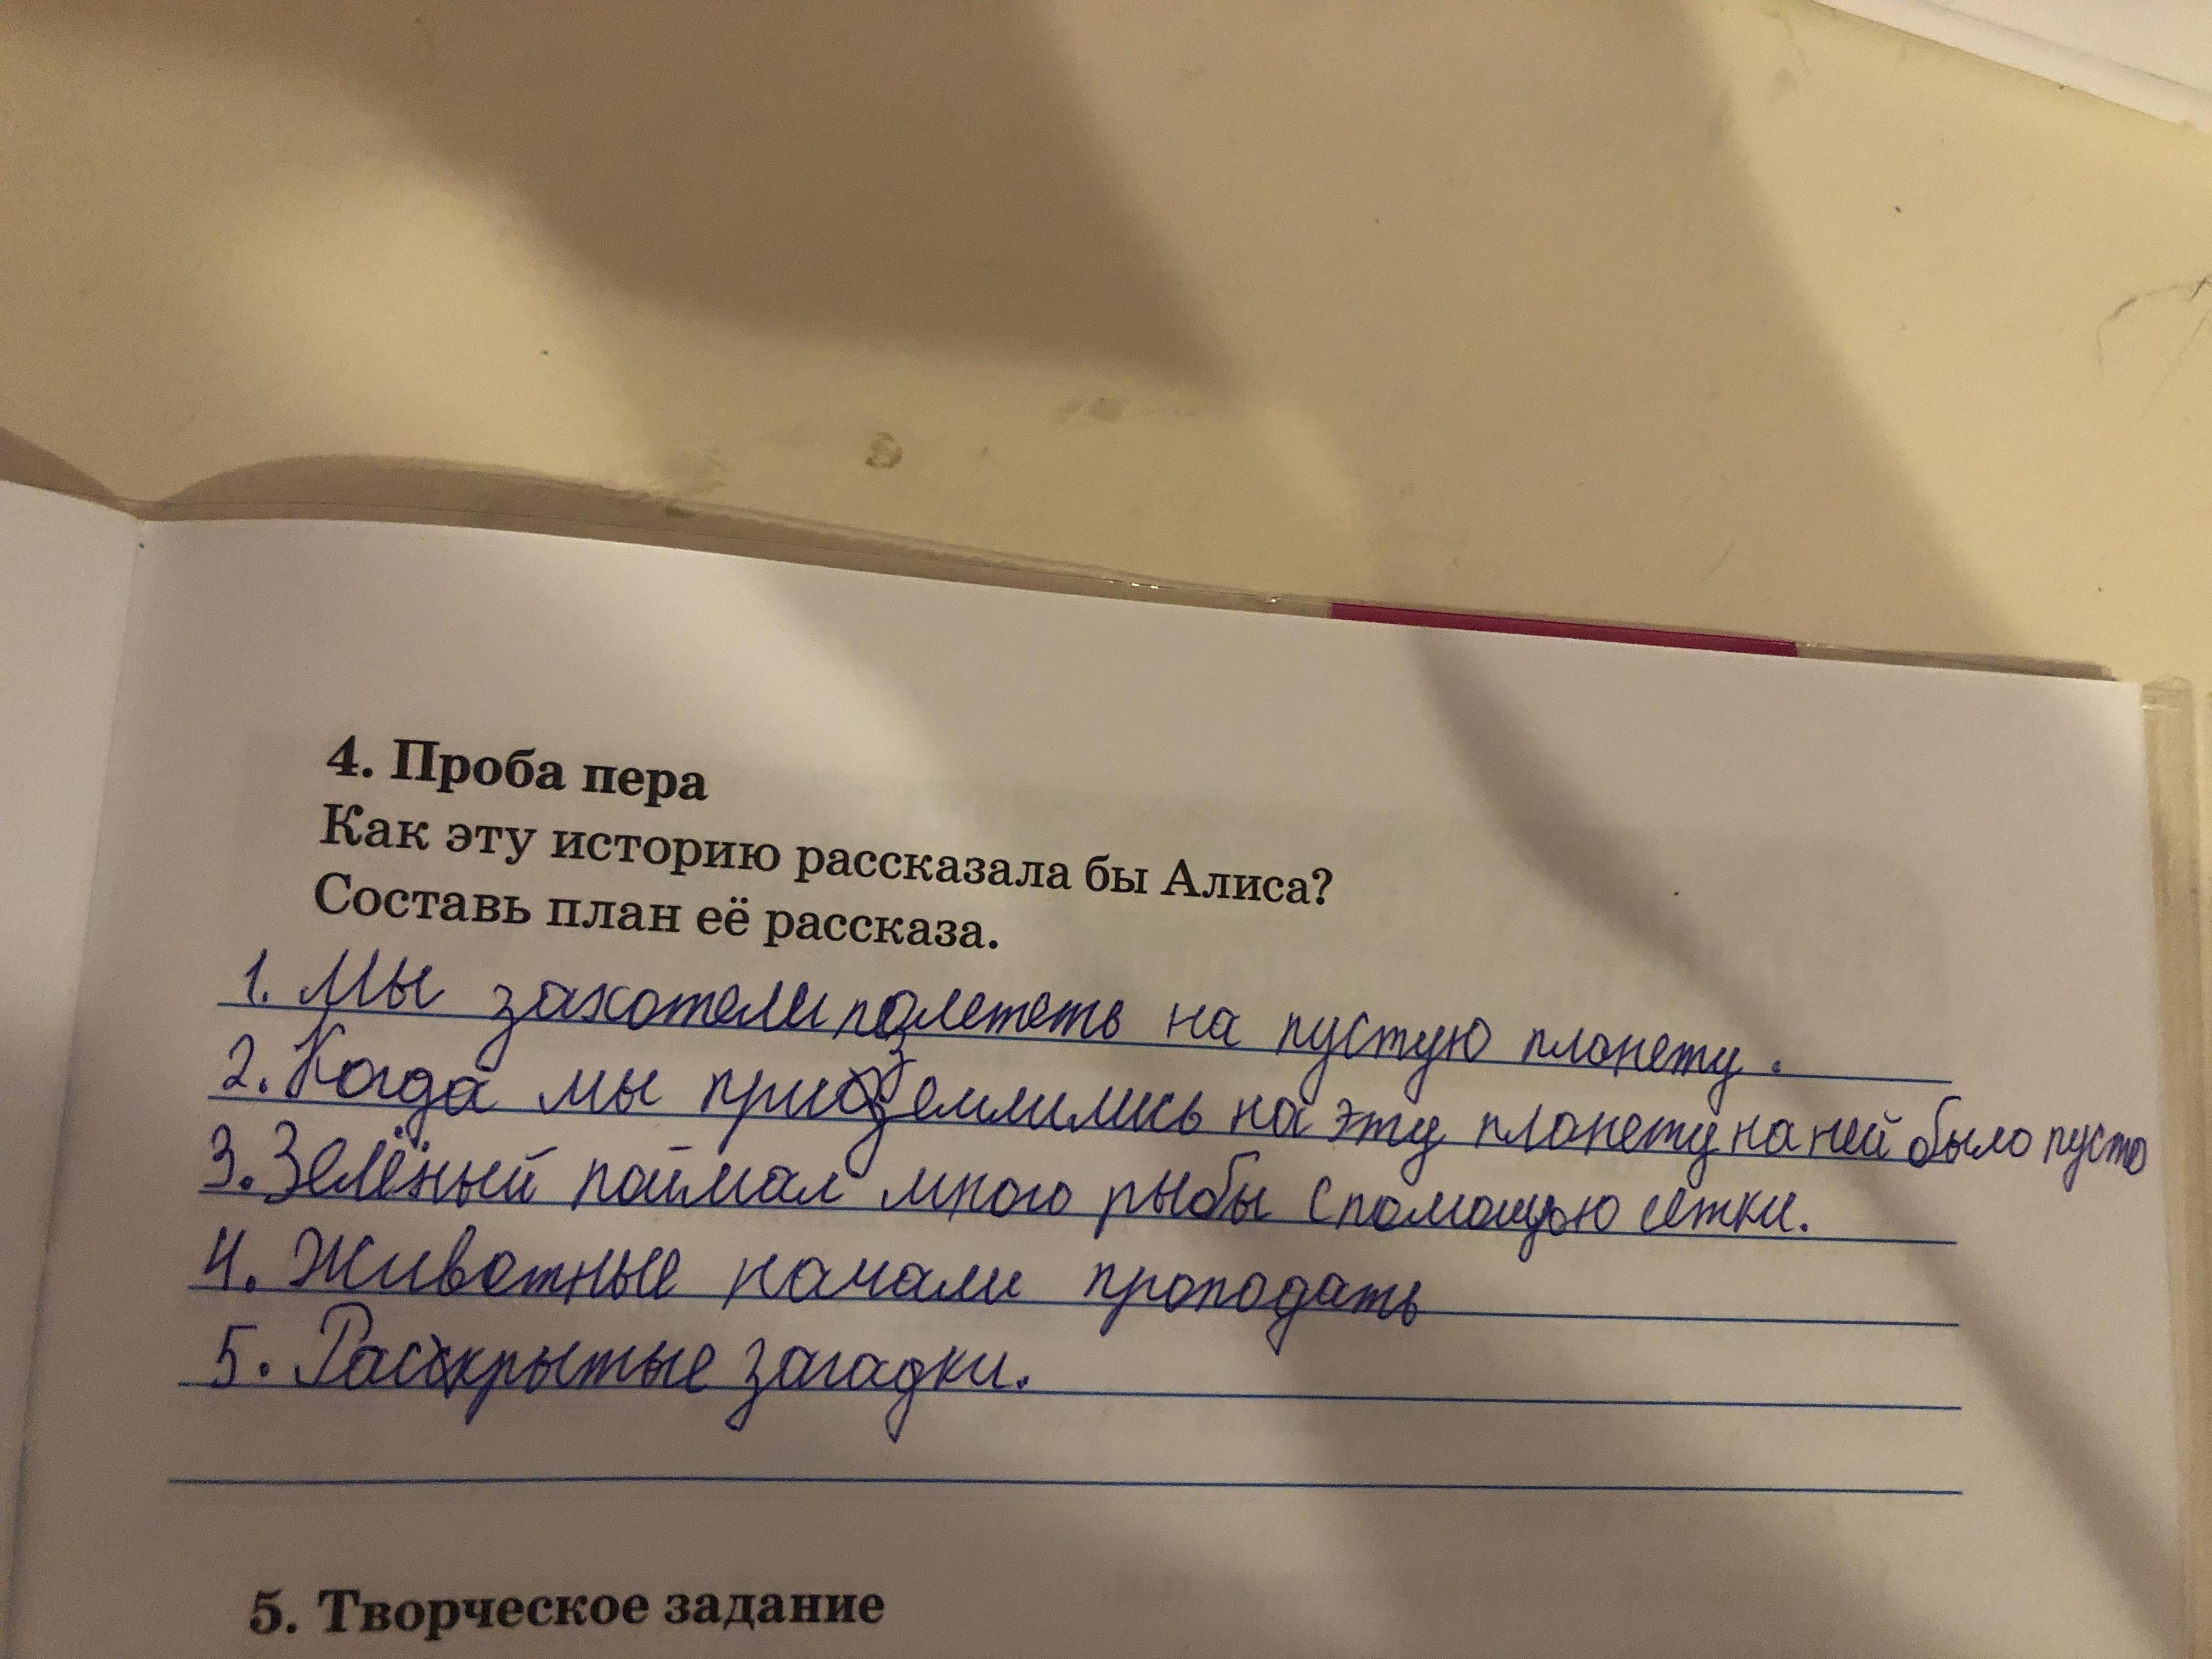 4. Проба пера
Как эту историю рассказала бы Алиса?
Составь план её рассказа.
1. Мы захотели полететь на пустую планету.
2. Когда мы приземлились на эту планету на ней было пусто
3. Зелёный поймал много рыбы с помощью сетки.
4. Животные начали проподать
5. Раскрытые загадки.
5. Творческое задание